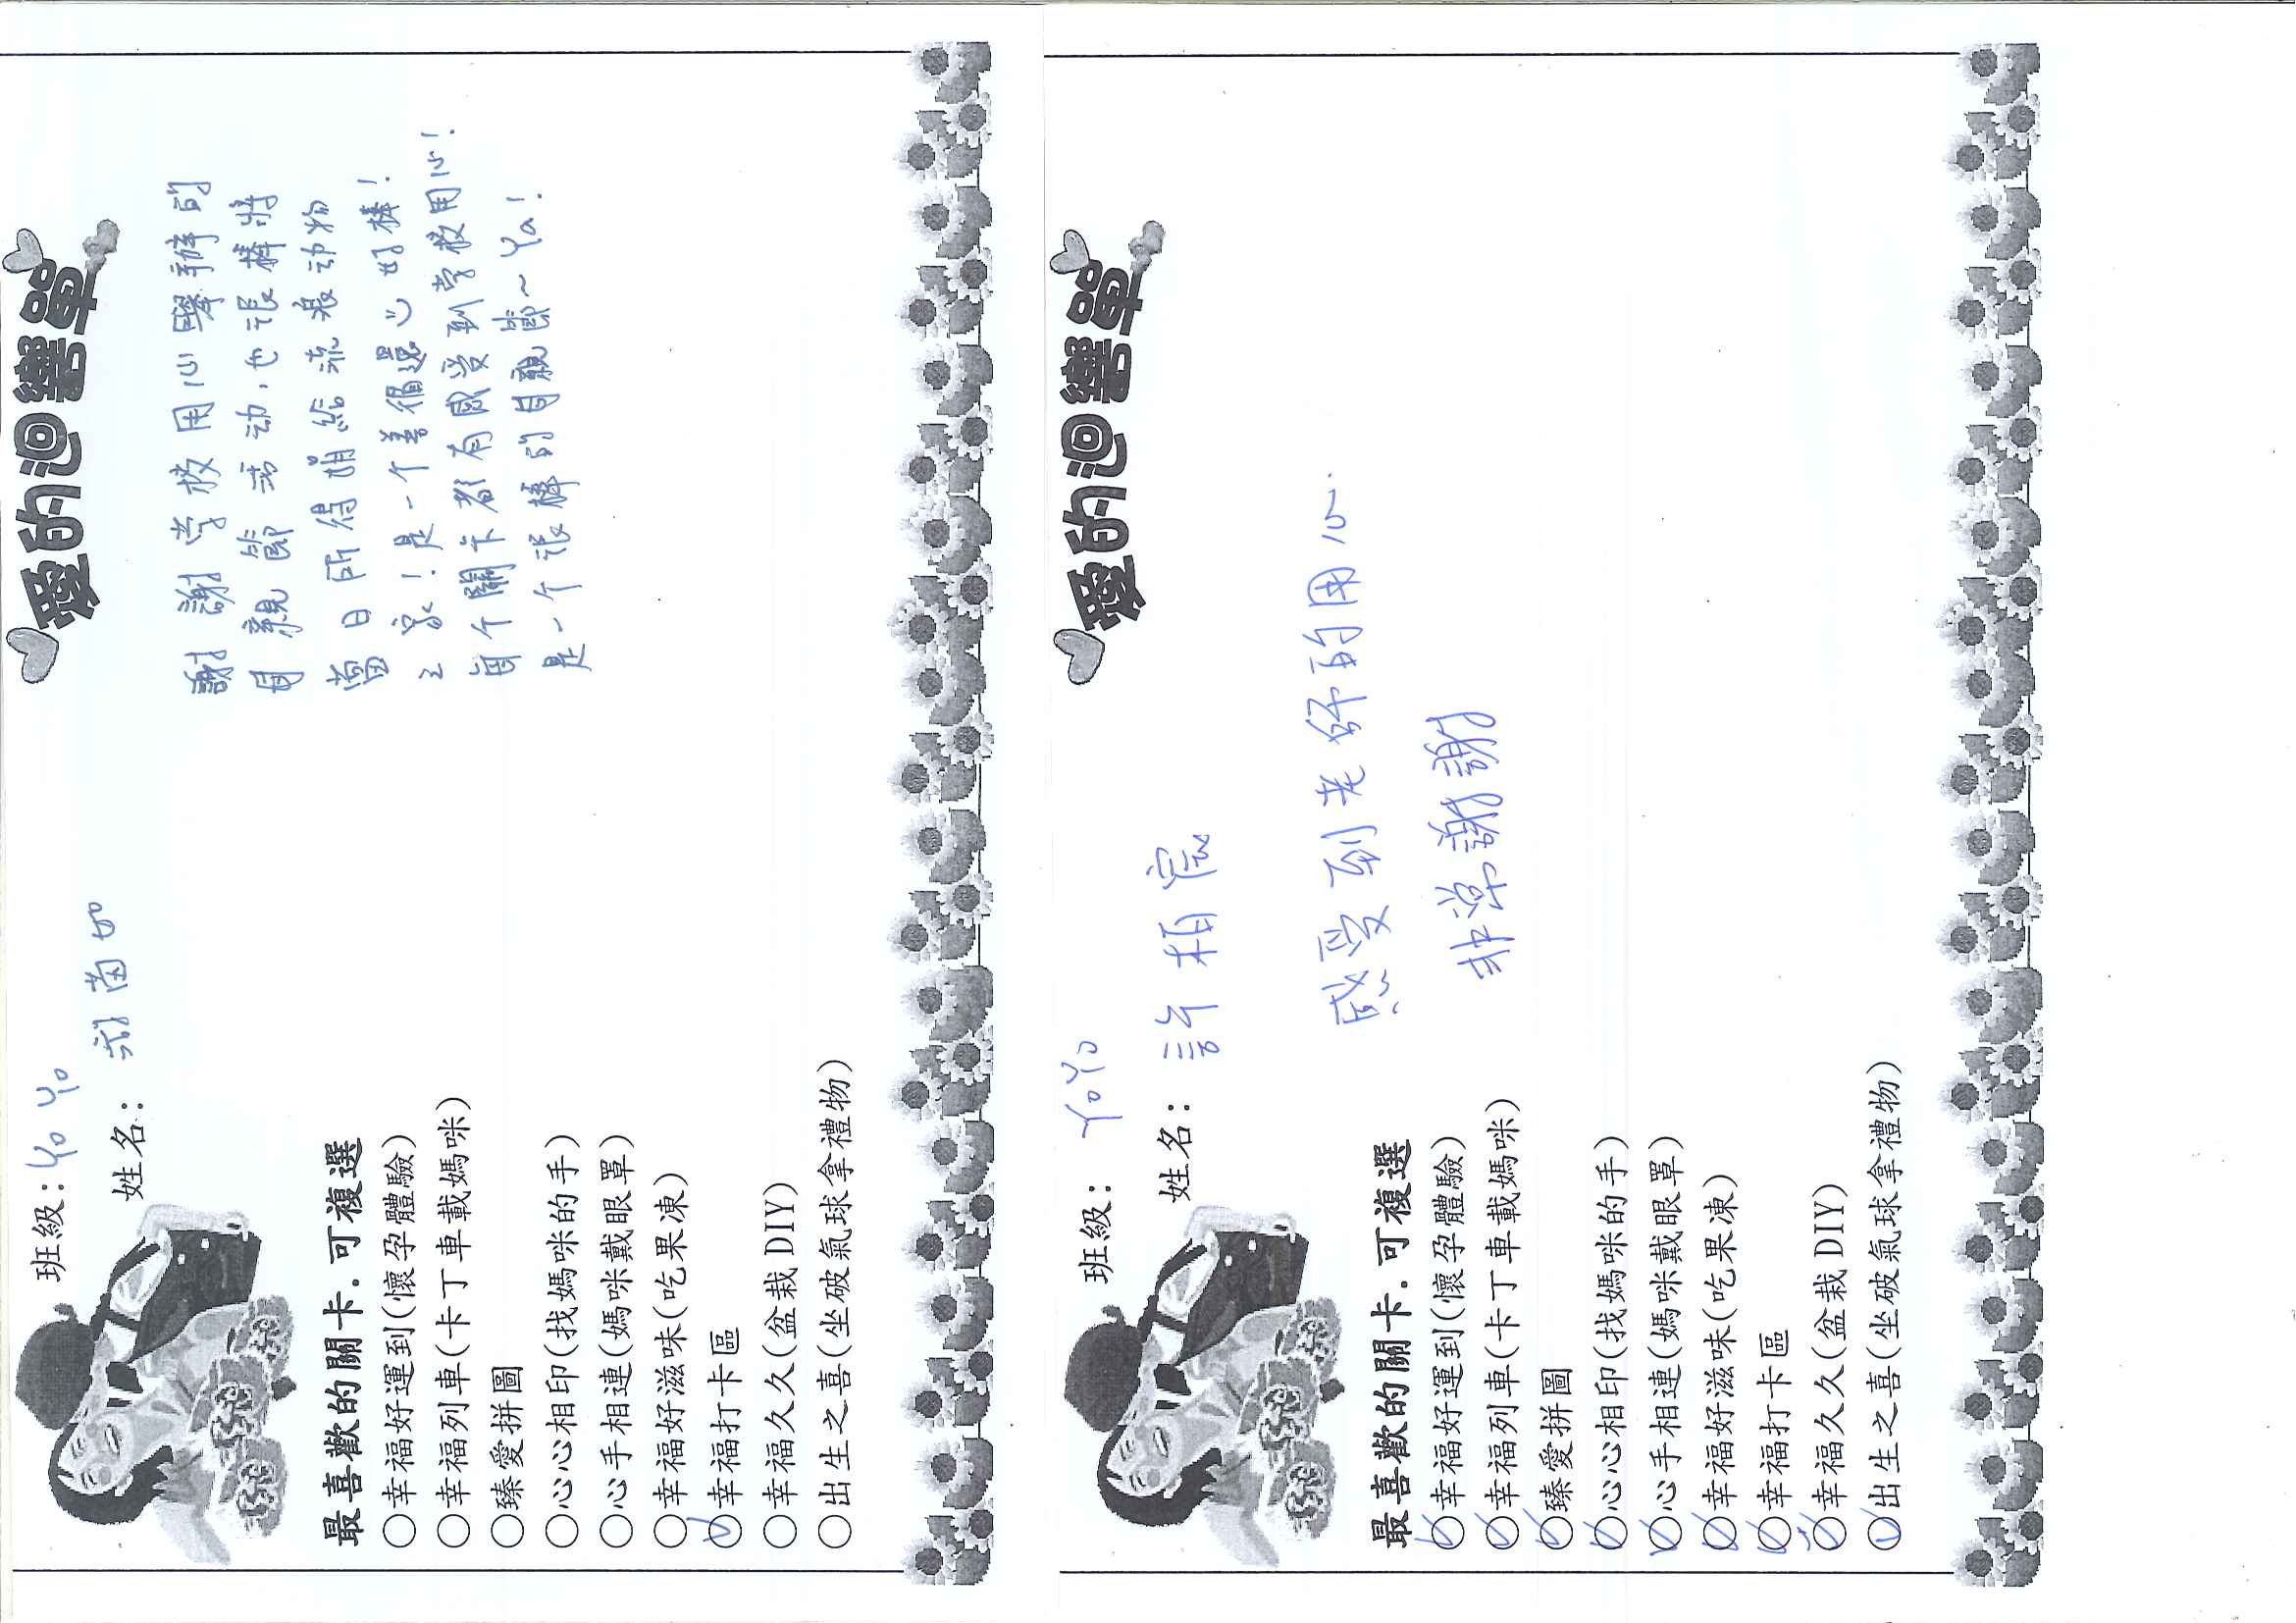 愛的迴響單
班級:YoYo
姓名:
最喜歡的關卡.可複選
○幸福好運到(懷孕體驗)
○幸福列車(卡丁車載媽咪)
○臻愛拼圖
○心心相印(找媽咪的手)
○心手相連(媽咪戴眼罩)
○幸福好滋味(吃果凍)
○幸福打卡區
○幸福久久(盆栽DIY)
○出生之喜(坐破氣球拿禮物)
謝謝学校用心舉辦的
母親節活动,也很棒將
當日所得捐給流浪动物
之家!是一个善循還 好棒!
每个關卡都有感受到学校用心!
是一个很棒的母親節~Ya!
愛的迴響單
班級: YoYo
姓名: 許栢宸
最喜歡的關卡.可複選
○幸福好運到(懷孕體驗)
○幸福列車(卡丁車載媽咪)
○臻愛拼圖
○心心相印(找媽咪的手)
○心手相連(媽咪戴眼罩)
○幸福好滋味(吃果凍)
○幸福打卡區
○幸福久久(盆栽DIY)
○出生之喜(坐破氣球拿禮物)
感受到老師的用心.
非常謝謝